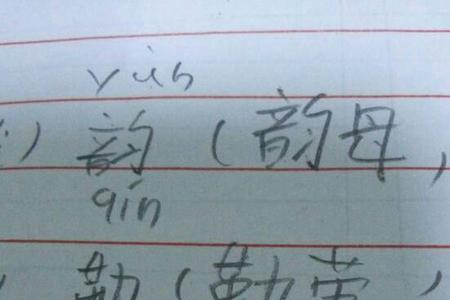 yùn
)韵(韵母,
qín
勤(勤劳,